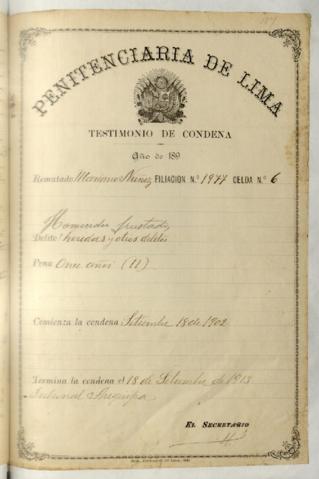 PENITENCIARIA DE LIMA
TESTIMONIO DE CONDENA
Año de 189
Rematado Mariano Nuñez FILIACION N.º 1977 CELDA N.º 6
Homicidio frustrado
Delito heridas y otros delitos
Pena Once años (11)
Comienza la condena Setiembre 18 de 1902
Termina la condena el 18 de Setiembre de 1913
Tribunal Arequipa
EL SECRETARIO